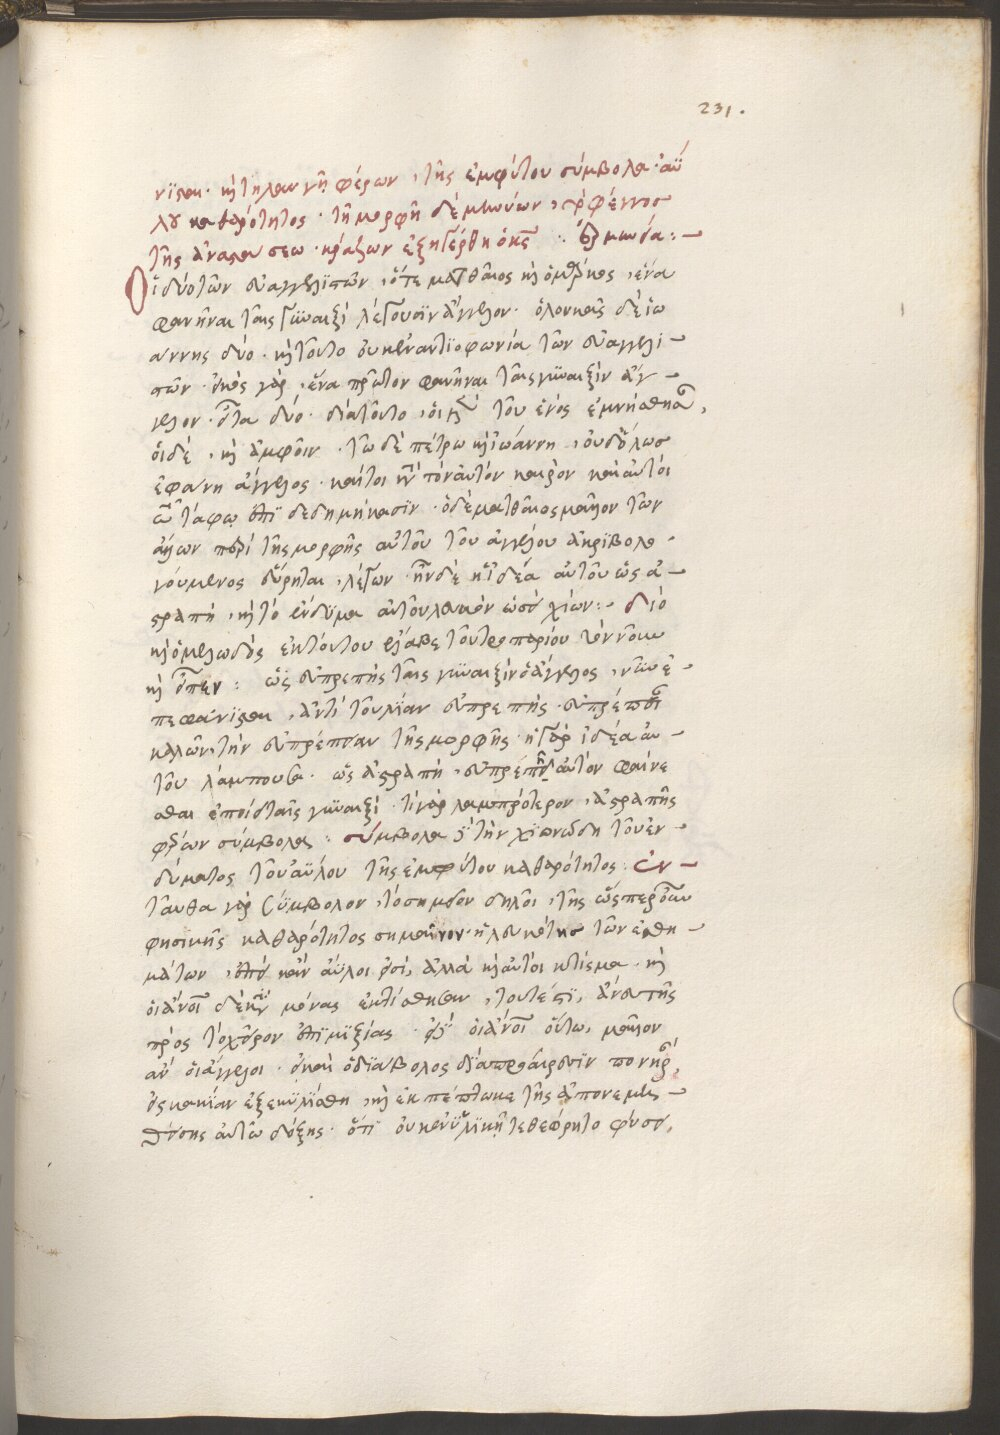 231.
νϊσαι· κὴ τηλαυγῆ φέρων, τῆς ἐμφύτου σύμβολα· ἀϋ
λου καθαρότητος· τῇ μορφῇ δὲ μηνύων, τὸ φέγγος
τῆς ἀναστάσεως· κράζων ἐξηγέρθη ὁ κς̅ :
Οἱ δύο τῶν εὐαγγελιστῶν, ὅτε ματθαῖος κὴ ὁ μάρκος, ἕνα
φανῆναι ταῖς γϋναιξὶ λέγουσϊν ἄγγελον· ὁ λουκᾶς δὲ ἰω
άννης δύο· κὴ τοῦτο οὐκ ἐναντϊοφωνία τῶν εὐαγγελι
στῶν· εἰκὸς γὰρ, ἕνα πρῶτον φανῆναι ταῖς γυναιξὶν ἄγ
γελον· εἶτα δύο· διατοῦτο, οἱ μὲν τοῦ ἑνὸς ἐμνήσθησαν,
οἱ δὲ, κὴ ἀμφοῖν· τῶ δὲ πέτρω κὴ ἰωάννη, οὐδόλως
ἐφάνη ἄγγελος· καίτοι κατὰ τὸν αὐτὸν καιρὸν καὶ αὐτοὶ
τῶ τάφω ἐπϊδεδημήκασϊν· ὁ δὲ ματθαῖος μᾶλλον τῶν
ἄλλων περὶ τῆς μορφῆς αὐτοῦ τοῦ ἀγγέλου ἀκριβολο
γούμενος εὕρηται, λέγων· ἦν δὲ ἡ ἰδέα αὐτοῦ ὡς ἀ
στραπὴ, κὴ τὸ ἔνδϋμα αὐτοῦ λευκὸν ὡσεὶ χϊών: διὸ
κὴ ὁ μελωδὸς ἐκ τούτου ἔλαβε τοῦ τροπαρίου τὸν νοῦν
κὴ εἶπεν: ὡς εὐπρεπὴς ταῖς γυναιξὶν ὁ ἄγγελος, νῦν ἐ
πεφάνϊσαι, ἀντὶ τοῦ λίαν εὐπρεπὴς· εὐπρέπειαν
καλῶν, τὴν εὐπρέπειαν τῆς μορφῆς· ἡ γὰρ ἰδέα αὐ
τοῦ λάμπουσα· ὡς ἀστραπὴ, εὐπρεπῆ αὐτὸν φαίνε
σθαι ἐποίει ταῖς γϋναιξὶ· τί γὰρ λαμπρότερον, ἀστραπῆς
φέρων σύμβολα: σύμβολα δὲ τὴν χϊονώδη τοῦ ἐν
δύματος τοῦ ἀϋλου τῆς ἐμφύτου καθαρότητος: ἐν
ταῦθα γὰρ σύμβολον, τὸ σημεῖον δηλοῖ, τῆς ὥσπερ οὖν
φησικῆς καθαρότητος σημαῖνον· ἡ λευκότης τῶν ἐσθη
μάτων, ἐπεὶ κἂν ἄϋλοι εἰσὶ, ἀλλὰ κὴ αὐτοὶ κτίσμα· κὴ
πρὸς τὸ χεῖρον ἐπϊμϊξίας·
ἂν οἱ ἄγγελοι· εἰ καὶ ὁ δϊάβολος
εἰς κακίαν ἐξεκϋλίσθη, κὴ ἐκπέπτωκε τῆς ἀπονεμη
θείσης αὐτῶ δόξης· ὅτϊ οὐκ ἐν ϋλϊκῇ τεθεώρητο φύσει,